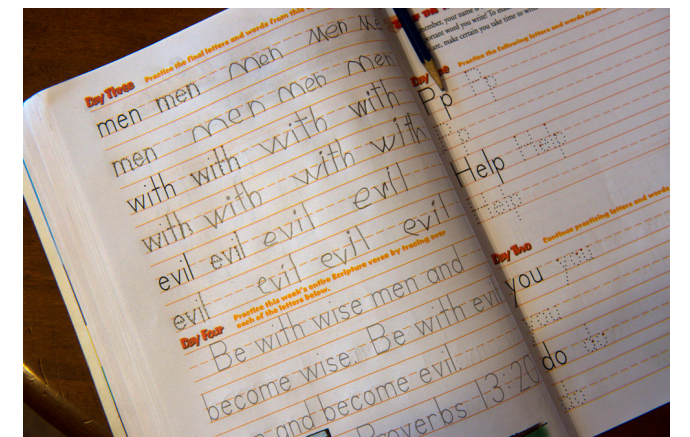 Day Three Practice the final letters and words from this
men men men men Me
men men men men
with with with with
with with with with
evil evil evil evil
evil evil evil evil
Day Four Practice this week's entire Scripture verse by tracing over
each of the letters below.
Be with wise men and
become wise. Be with evil
and become evil.
Proverbs 13:20
member, your name is
portant word you write! To
are, make certain you take time to
Day One Practice the following letters and words
Pp Pp
Pp
Help Help
Help
Day Two Continue practicing letters and words
you you
you
do do
do